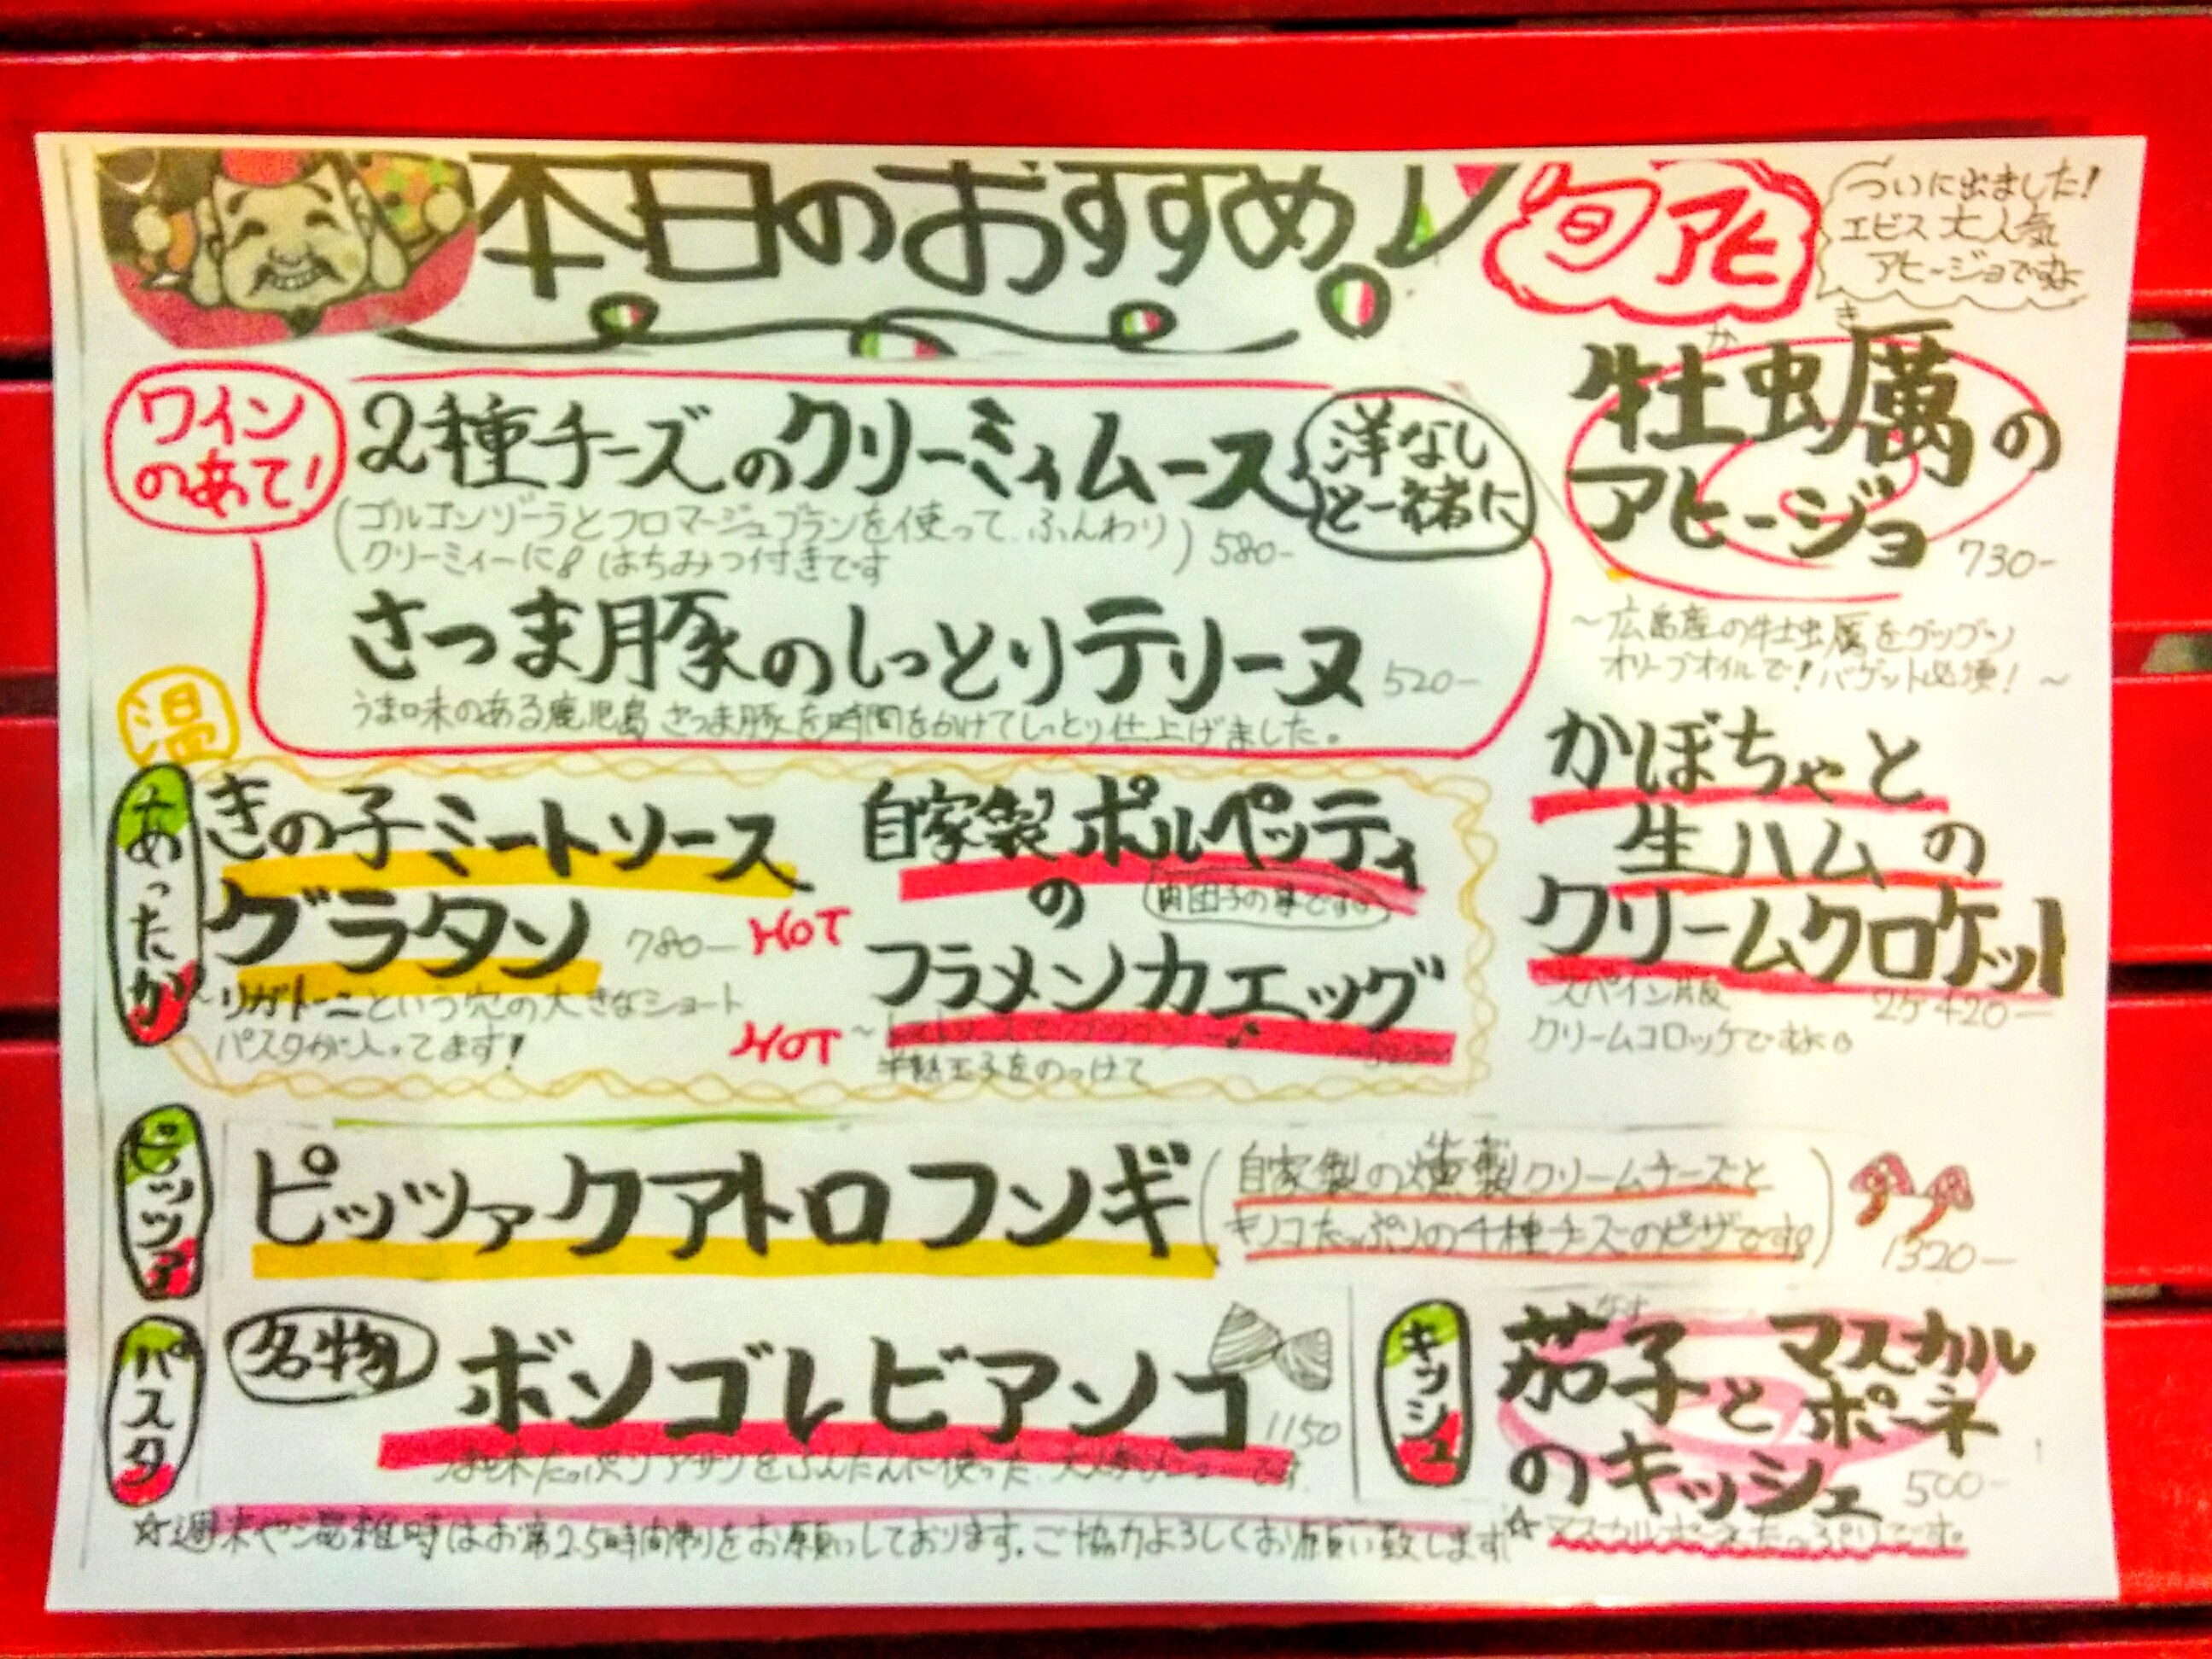 本日のおすすめ
旬アヒ
ついに出ました!
エビス 大人気
アヒージョですよ
ワイン
のあて!
2種チーズのクリーミィムース
洋なし
と一緒に
(ゴルゴンゾーラとフロマージュブランを使って ふんわり
クリーミィーに はちみつ付きです) 580-
さつま豚のしっとりテリーヌ 520-
うま味のある鹿児島 さつま豚を時間をかけてしっとり仕上げました。
かき
牡蠣の
アヒージョ 730-
~広島産の牡蠣をグツグツ
オリーブオイルで!バゲット必須!~
かぼちゃと
生ハムの
クリームクロケット
スペイン版 2ケ420-
クリームコロッケですよ
温
あったか
きの子ミートソース
グラタン 780-
~リガトーニという穴の大きなショート
パスタが入ってます!
HOT
HOT
自家製ポルペッティ
の
肉団子の事です
フラメンカエッグ
半熟玉子をのっけて
ピッツァ
ピッツァクアトロフンギ
(自家製の燻製クリームチーズと
キノコたっぷりの4種チーズのピザです) 1320-
パスタ
名物
ボンゴレビアンコ 1150
うま味たっぷりアサリをふんだんに使った
キッシュ
なす
茄子とマスカル
ポーネ
のキッシュ 500-
マスカルポーネたっぷりです。
☆週末や混雑時はお席2.5時間制をお願いしております。ご協力よろしくお願い致します☆